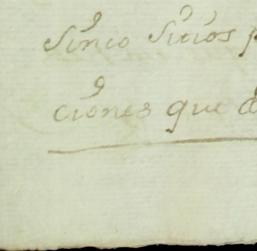 Sinco Sitios p
ciones que d